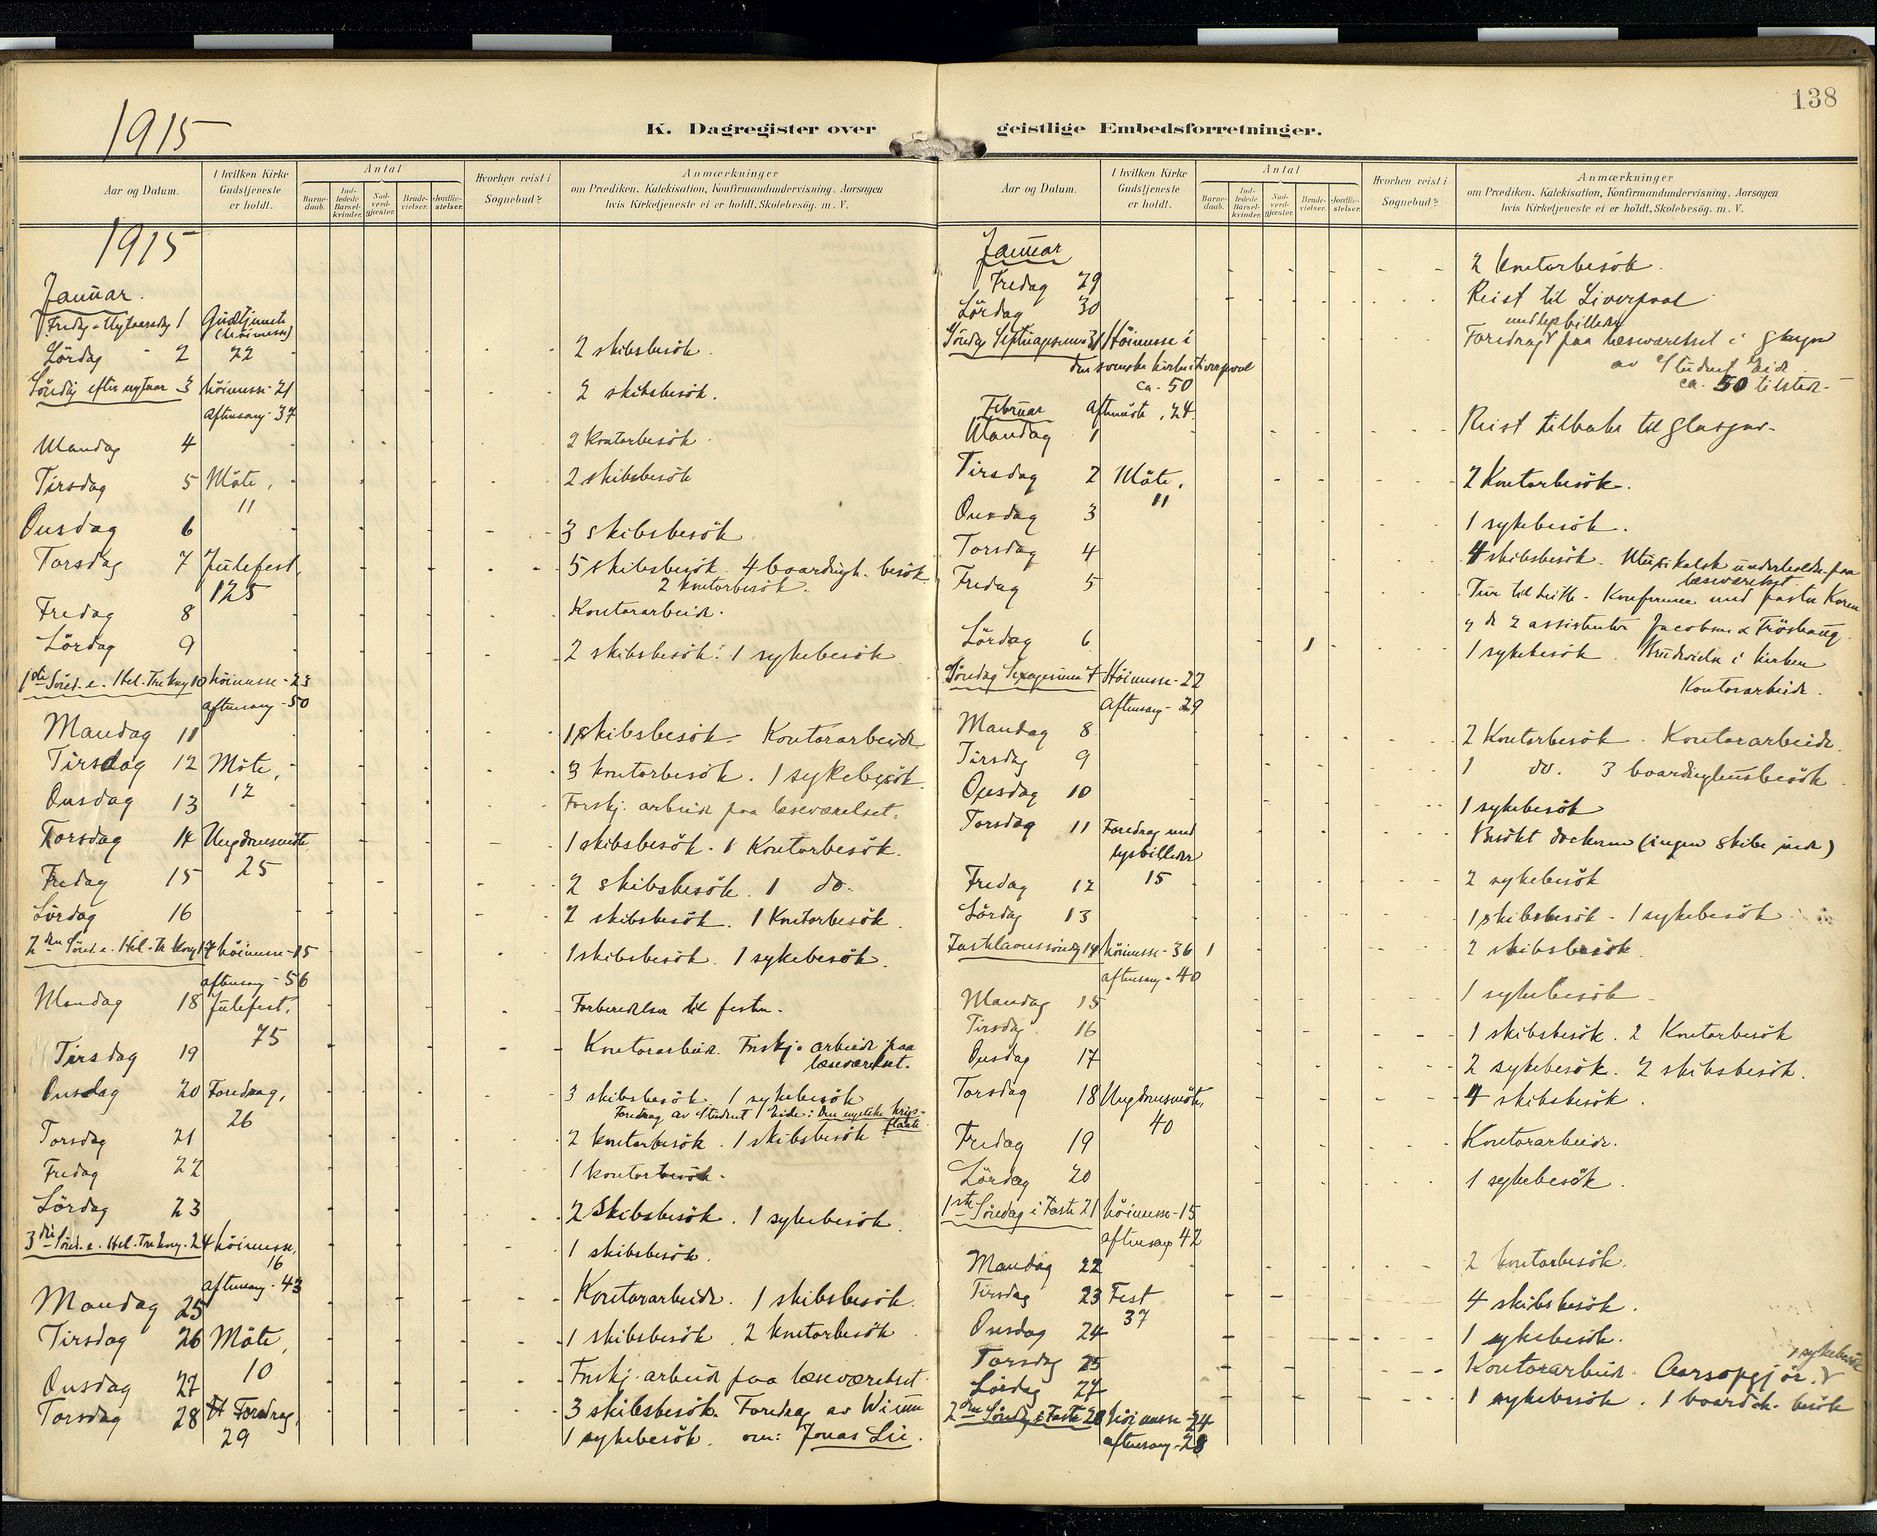 138
1915
K. Dagregister over geistlige Embedsforretninger.
Aar og Datum.
I hvilken Kirke Gudstjeneste er holdt.
Antal
Barne-daab.
Ind-ledede Barsel-kvinder.
Nad-verd-gjester.
Brude-vielser.
Jordfæ-stelser.
Hvorhen reist i Sognebud?
Anmærkninger
om Prædiken, Katekisation, Konfirmandundervisning, Aarsagen
hvis Kirketjeneste ei er holdt, Skolebesøg. m. V.
1915
Januar.
Fredag - Nytaarsdag 1 Gudtjeneste
(høimesse)
Lördag 2 22 2 skibsbesök.
Söndag efter nytaar 3 höimesse - 21 2 skibsbesök.
aftensang - 37
Mandag 4 2 kontorbesök.
Tirsdag 5 Möte, 2 skibsbesök
11
Onsdag 6 3 skibsbesök
Torsdag 7 Julefest, 5 skibsbesök. 4 boardingh. besök
125 2 kontorbesök.
Fredag 8 Kontorarbeide.
Lördag 9 2 skibsbesök. 1 sykebesök
1ste Sönd. e. Hel. Tre kong 10 höimesse - 23
aftensang - 50
Mandag 11 1 skibsbesök. Kontorarbeide
Tirsdag 12 Möte, 3 kontorbesök. 1 sykebesök
12
Onsdag 13 Forskj. arbeide paa læseværelset.
Torsdag 14 Ungdomsmöte 1 skibsbesök. 1 Kontorbesök.
25
Fredag 15 2 skibsbesök. 1 do.
Lördag 16 2 skibsbesök. 1 Kontorbesök.
2den Sönd. e. Hel. Tr. Kong 17 höimesse - 15 1 skibsbesök. 1 sykebesök.
aftensang - 56
Mandag 18 Julefest, Forberedelser til festen.
75
Tirsdag 19 Kontorarbeide. Forskj. arbeide paa
læseværelset.
Onsdag 20 Foredrag, 3 skibsbesök 1 sykebesök
26 Foredrag av Student Eide: Den mystiske krigs-
flaate
Torsdag 21 2 kontorbesök. 1 skibsbesök
Fredag 22 1 kontorbesök.
Lördag 23 2 skibsbesök. 1 sykebesök.
3die Sönd. e. Hel. Tre kong. 24 höimesse, 1 skibsbesök.
16
aftensang - 43
Mandag 25 Kontorarbeide. 1 skibsbesök.
Tirsdag 26 Möte, 1 skibsbesök. 2 kontorbesök
10
Onsdag 27 Forskj. arbeide paa læseværelset.
Torsdag 28 Foredrag, 3 skibsbesök. Foredrag av
29 1 sykebesök. om: Jonas Lie.
Aar og Datum.
I hvilken Kirke Gudstjeneste er holdt.
Antal
Barne-daab.
Ind-ledede Barsel-kvinder.
Nad-verd-gjester.
Brude-vielser.
Jordfæ-stelser.
Hvorhen reist i Sognebud?
Anmærkninger
om Prædiken, Katekisation, Konfirmandundervisning, Aarsagen
hvis Kirketjeneste ei er holdt, Skolebesøg. m. V.
Januar
Fredag 29 2 kontorbesök.
Lördag 30 Reist til Liverpool
Söndag Septuagesima 31 Höimesse i Foredrag med lysbilleder paa læseværelset i Glasgow
den svenske kirke i Liverpool av Student Eide
ca. 50 ca. 50 tilstede -
Februar aftenmöte, 24
Mandag 1 Reist tilbake til Glasgow.
Tirsdag 2 Möte, 2 Kontorbesök.
11
Onsdag 3 1 sykebesök.
Torsdag 4 4 skibsbesök. Musikalsk underholdn. paa
læseværelset
Fredag 5 Tur til Leith - Konferanse med pastor Koren
og de 2 assistenter Jacobsen & Fröshaug.
Lördag 6 1 1 sykebesök. Brudevielse i kirken
Söndag Sexagesima 7 Höimesse - 22 Kontorarbeide.
aftensang - 29
Mandag 8 2 Kontorbesök. Kontorarbeide.
Tirsdag 9 1 do. 3 boardinghusbesök
Onsdag 10 1 sykebesök
Torsdag 11 Foredrag med Besökt dockerne (ingen skibe inde)
lysbilleder
Fredag 12 15 2 sykebesök
Lördag 13 1 skibsbesök - 1 sykebesök
Fastelavnssöndag 14 höimesse - 36 1 2 skibsbesök.
aftensang - 40
Mandag 15 1 sykebesök
Tirsdag 16 1 skibsbesök. 2 Kontorbesök
Onsdag 17 2 sykebesök. 2 skibsbesök.
Torsdag 18 Ungdomsmöte, 4 skibsbesök.
40
Fredag 19 Kontorarbeide.
Lördag 20 1 sykebesök.
1ste Söndag i Faste 21 höimesse - 15
aftensang 42
Mandag 22 2 kontorbesök.
Tirsdag 23 Fest 4 skibsbesök.
37
Onsdag 24 1 sykebesök.
Torsdag 25 Kontorarbeid. Aarsopgjör. 1 sykebesök
Lördag 27 1 sykebesök. 1 boardh. besök
2den Söndag i Faste 28 höimesse - 24
aftensang - 28